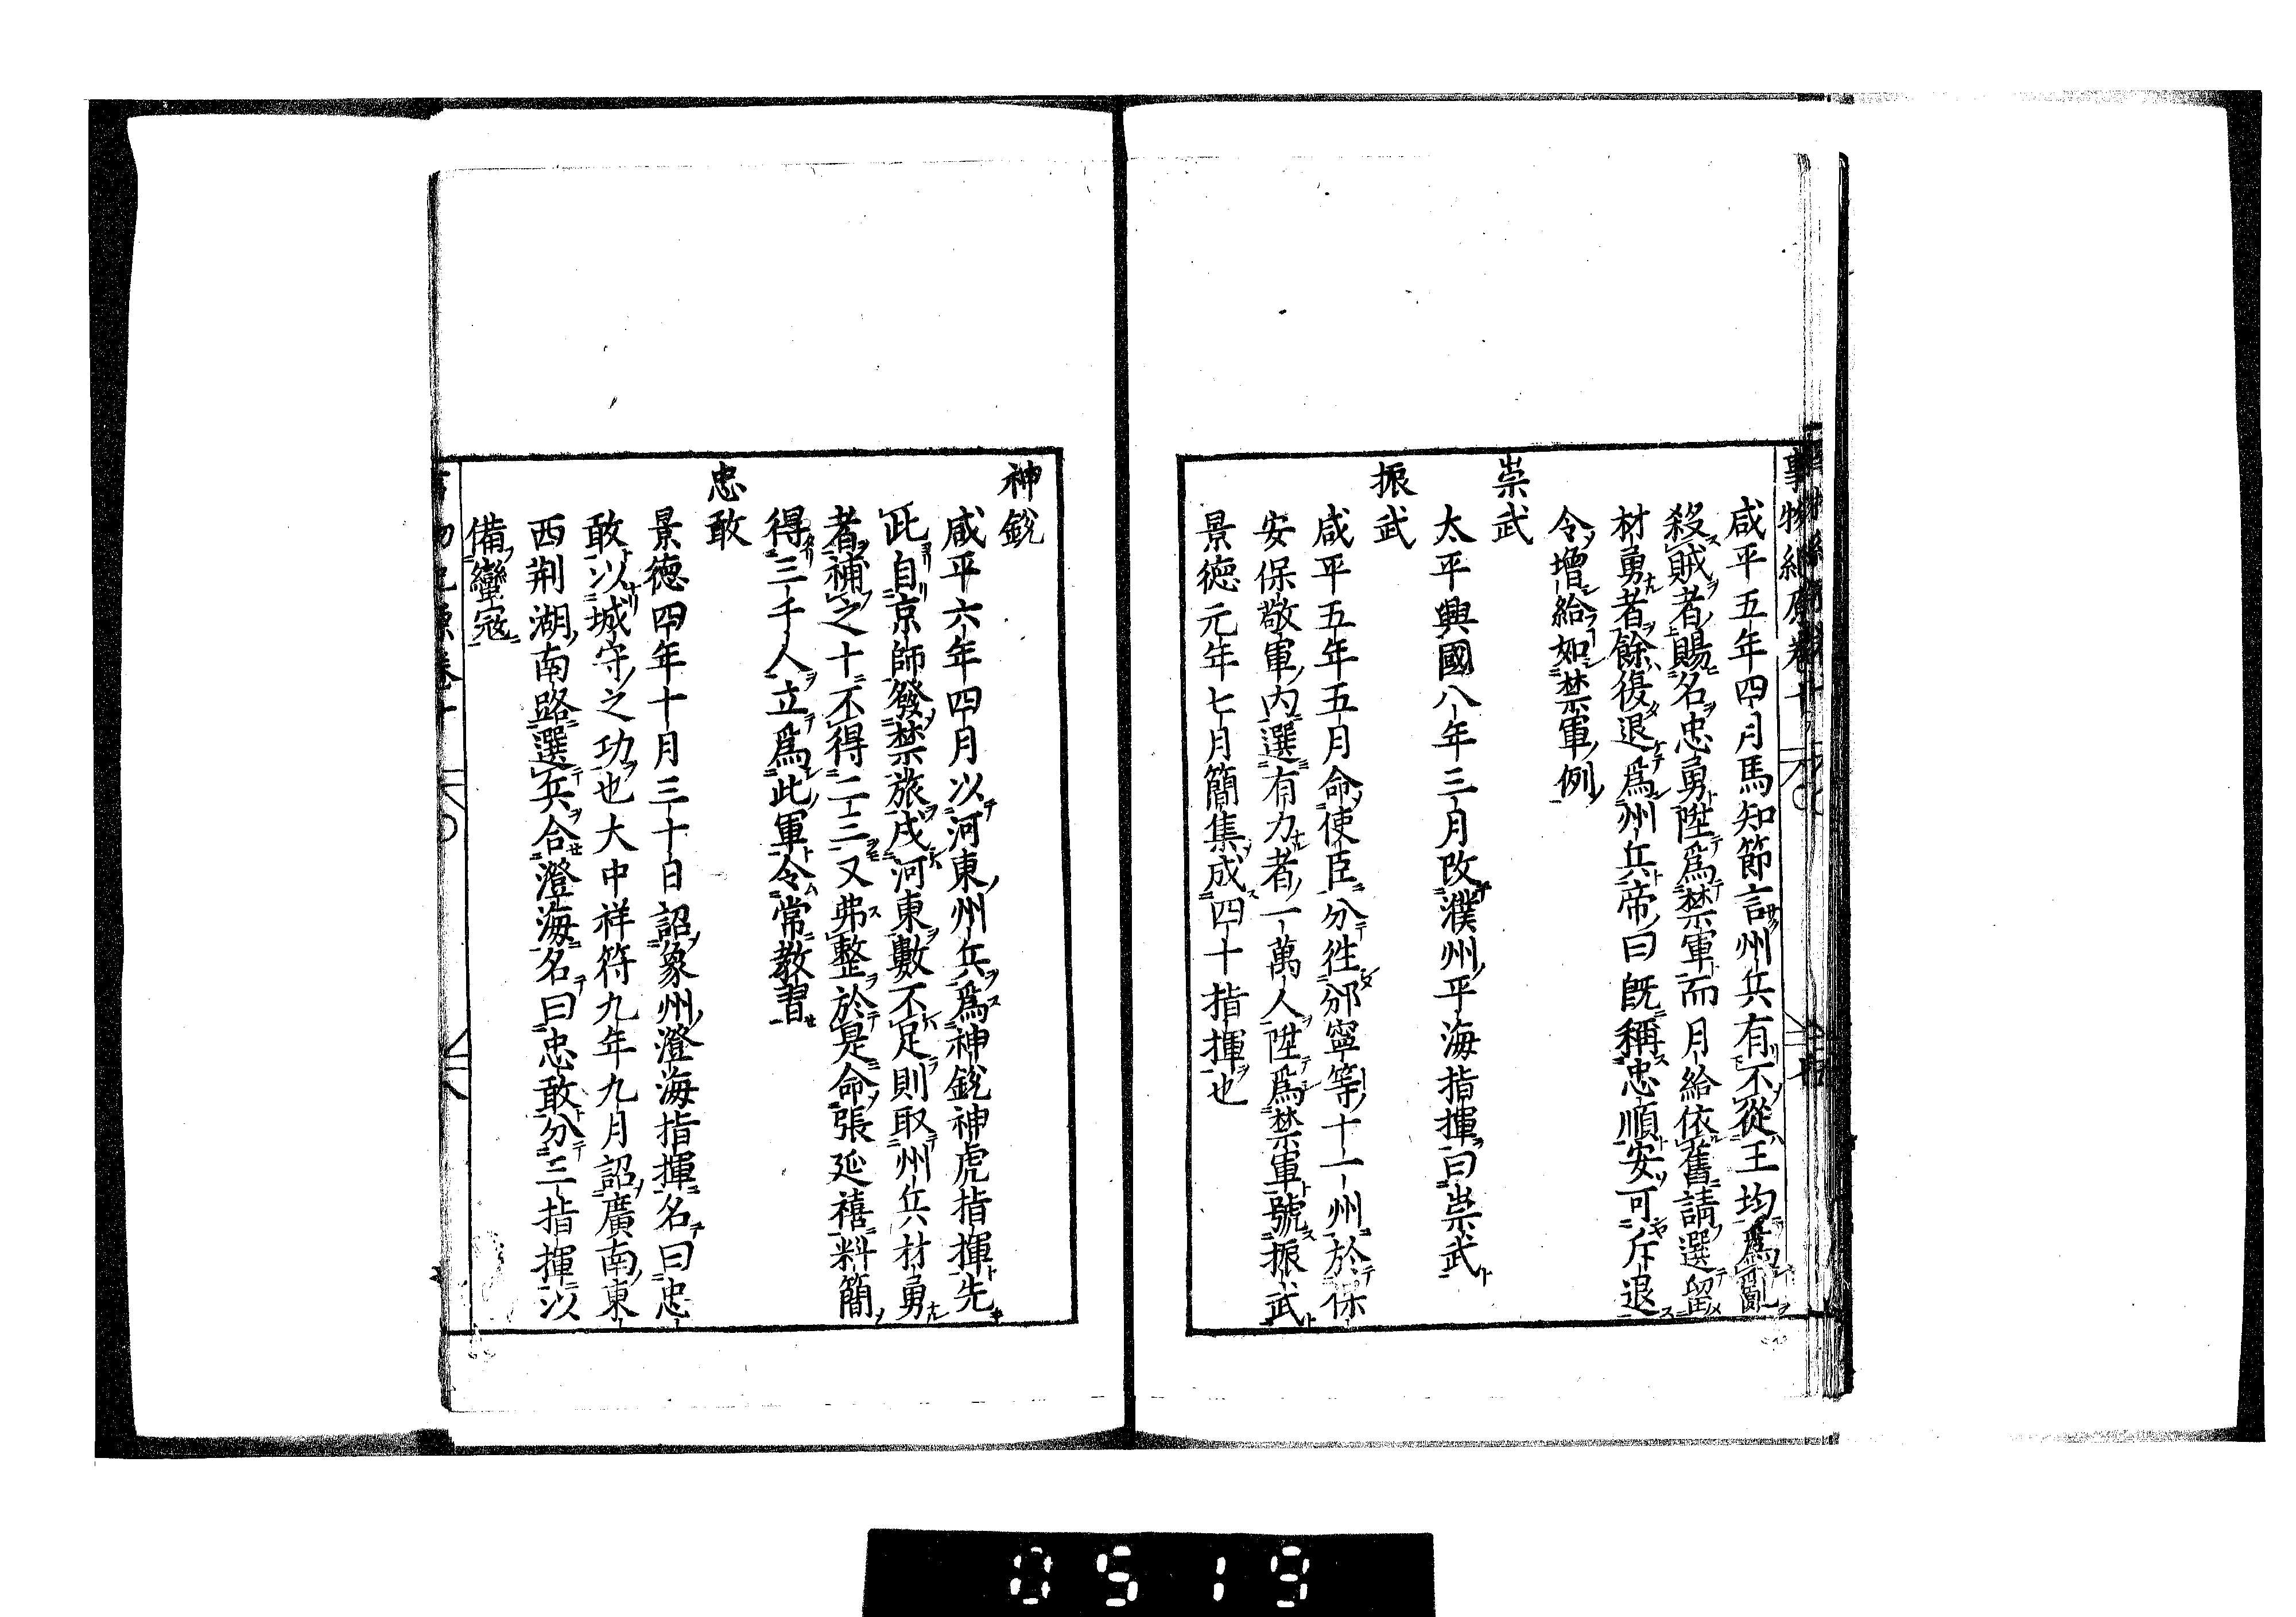 事物紀原卷十
咸平五年四月馬知節言州兵有不從王均爲亂
殺賊者賜名忠勇陞爲禁軍而月給依舊請選留
材勇者餘復退爲州兵帝曰既稱忠順安可斥退
令增給如禁軍例
崇武
太平興國八年三月改濮州平海指揮曰崇武
振武
咸平五年五月命使臣分徃邠寧等十一州於保
安保敬軍内選有力者一萬人陞爲禁軍號振武
景德元年七月簡集成四十指揮也
神銳
咸平六年四月以河東州兵爲神銳神虎指揮先
此自京師發禁旅戍河東數不足則取州兵材勇
者補之十不得二三又弗整於是命張延禧料簡
得三千人立爲此軍令常教習
忠敢
景德四年十月三十日詔象州澄海指揮名曰忠
敢以城守之功也大中祥符九年九月詔廣南東
西荆湖南路選兵合澄海名曰忠敢分三指揮以
備蠻宼
0519